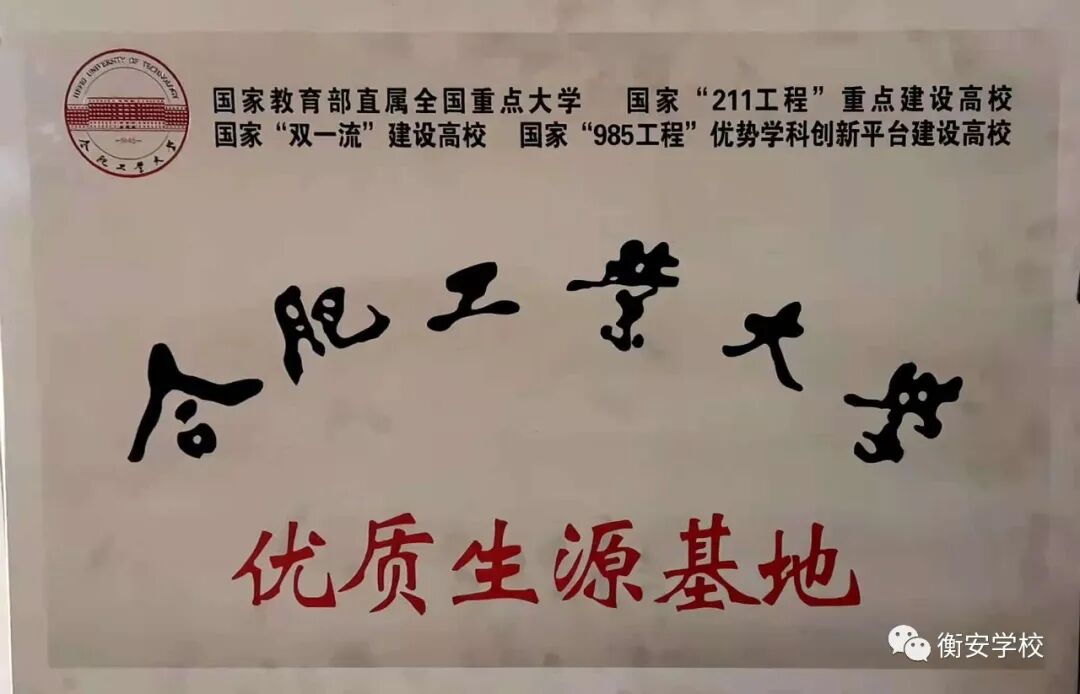 HEFEI UNIVERSITY OF TECHNOLOGY
1945
合肥工业大学
国家教育部直属全国重点大学 国家“211工程”重点建设高校
国家“双一流”建设高校 国家“985工程”优势学科创新平台建设高校
合肥工业大学
优质生源基地
衡安学校